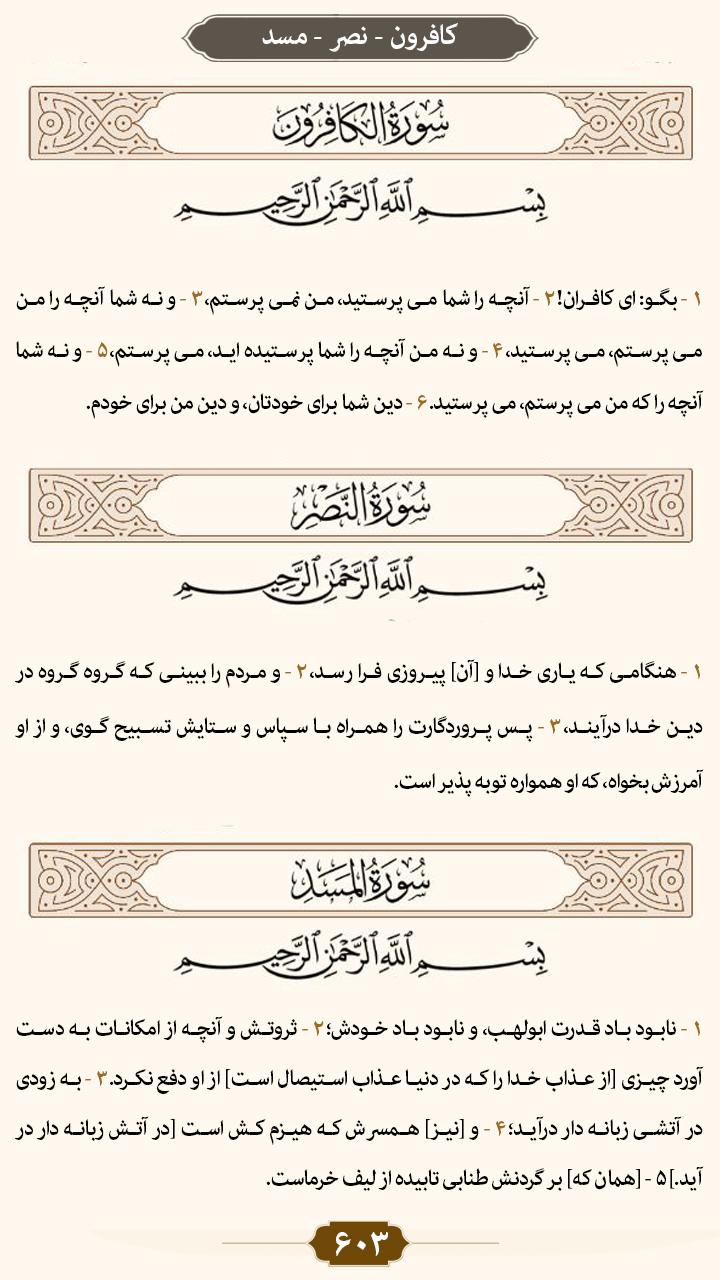 کافرون - نصر - مسد
سُورَةُ الكَافِرُون
بِسْمِ ٱللَّهِ ٱلرَّحْمَٰنِ ٱلرَّحِيمِ
۱ - بگـو: ای کافـران! ۲ - آنچـه را شما مـی پرسـتید، مـن نمـی پرسـتم، ۳ - و نـه شما آنچـه را مـن
مـی پرسـتم، مـی پرسـتید، ۴ - و نـه مـن آنچـه را شما پرسـتیده ایـد، مـی پرسـتم، ۵ - و نـه شما
آنچه را که من می پرستم، می پرستید. ۶ - دین شما برای خودتان، و دین من برای خودم.
سُورَةُ النَّصْرِ
بِسْمِ ٱللَّهِ ٱلرَّحْمَٰنِ ٱلرَّحِيمِ
۱ - هنگامـی کـه یـاری خـدا و [آن] پیـروزی فـرا رسـد، ۲ - و مـردم را ببینـی کـه گـروه گـروه در
دیـن خـدا درآینـد، ۳ - پـس پـروردگارت را همـراه بـا سـپاس و سـتایش تسـبیح گـوی، و از او
آمرزش بخواه، که او همواره توبه پذیر است.
سُورَةُ المَسَدِ
بِسْمِ ٱللَّهِ ٱلرَّحْمَٰنِ ٱلرَّحِيمِ
۱ - نابـود بـاد قـدرت ابولهـب، و نابـود بـاد خـودش؛ ۲ - ثروتـش و آنچـه از امکانـات بـه دسـت
آورد چیـزی [از عـذاب خـدا را کـه در دنیـا عـذاب اسـتیصال اسـت] از او دفع نکـرد. ۳ - بـه زودی
در آتشـی زبانـه دار درآیـد؛ ۴ - و [نیـز] همسـرش کـه هیـزم کـش اسـت [در آتـش زبانـه دار در
آید.] ۵ - [همان که] بر گردنش طنابی تابیده از لیف خرماست.
۶۰۳